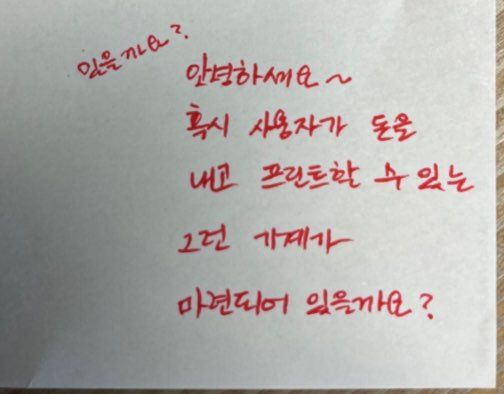 있을까요?
안녕하세요~
혹시 사용자가 돈을
내고 프린트할 수 있는
그런 가게가
마련되어 있을까요?